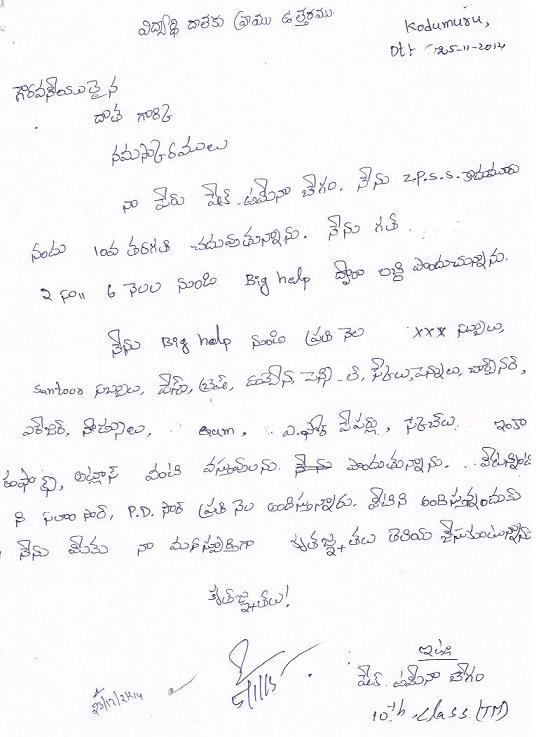 విద్యార్థి దాతకు వ్రాయు ఉత్తరము
Kodumuru,
Dt: 25-11-2014
గౌరవనీయులైన
దాత గారికి
నమస్కారములు
నా పేరు షేక్. అమీనా బేగం. నేను Z.P.S.S. కొడుమూరు
నందు 10వ తరగతి చదువుతున్నాను. నేను గత
2 సం॥ 6 నెలల నుండి Big help ద్వారా లబ్ధి పొందుచున్నాను.
నేను Big help నుండి ప్రతి నెల xxx సబ్బులు,
Santoor సబ్బులు, పేస్ట్, బ్రష్, కొబ్బరినూనె, పెన్సిల్, స్కేలు, పెన్నులు, షార్ప్‌నర్,
ఎరేజర్, నోట్సులు, Gum, ఎ.ఫోర్ పేపర్లు, స్కెచ్‌లు. ఇంకా
అట్లాస్ వంటి వస్తువులను నేను పొందుతున్నాను. వీటన్నింటి
ని సార్, P.D. సార్ ప్రతి నెల అందిస్తున్నారు. వీటిని అందిస్తున్నందుకు
నేను మీకు నా మనస్ఫూర్తిగా కృతజ్ఞతలు తెలియ చేసుకుంటున్నాను
కృతజ్ఞతలు!
ఇట్లు
షేక్. అమీనా బేగం
10th class (TM)
5/1/15
23/12/2k14